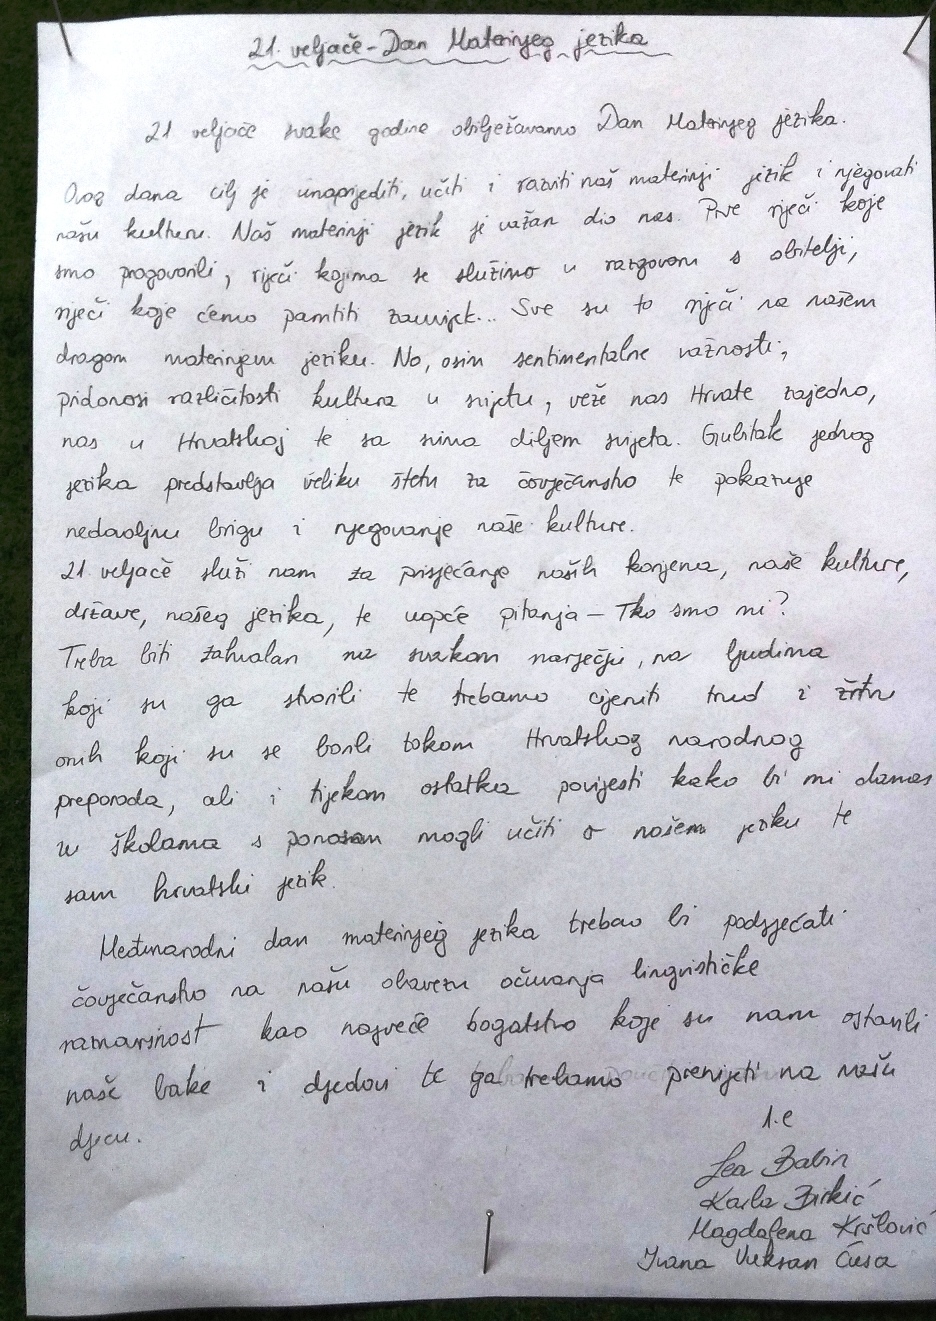 21. veljače - Dan Materinjeg jezika
21 veljače svake godine obilježavamo Dan Materinjeg jezika.
Ovog dana cilj je unaprijediti, učiti i razviti naš materinji jezik i njegovati
našu kulturu. Naš materinji jezik je važan dio nas. Prve riječi koje
smo progovorili, riječi kojima se služimo u razgovoru s obitelji,
riječi koje ćemo pamtiti zauvijek... Sve su to riječi na našem
dragom materinjem jeziku. No, osim sentimentalne važnosti,
pridonosi različitosti kultura u svijetu, veže nas Hrvate zajedno,
nas u Hrvatskoj te sa svima diljem svijeta. Gubitak jednog
jezika predstavlja veliku štetu za čovječanstvo te pokazuje
nedovoljnu brigu i njegovanje naše kulture.
21. veljače služi nam za prisjećanje naših korijena, naše kulture,
države, našeg jezika, te uopće pitanja – Tko smo mi?
Treba biti zahvalan na svakom narječju, na ljudima
koji su ga stvorili te trebamo cijeniti trud i žrtvu
onih koji su se borili tokom Hrvatskog narodnog
preporoda, ali i tijekom ostatka povijesti kako bi mi danas
u školama s ponosom mogli učiti o našem jeziku te
sam hrvatski jezik.
Međunarodni dan materinjeg jezika trebao bi podsjećati
čovječanstvo na našu obavezu očuvanja lingvističke
raznovrsnosti kao najveće bogatstvo koje su nam ostavili
naše bake i djedovi te ga trebamo prenijeti na našu
djecu.
1.e
Lea Babin
Karla Birkić
Magdalena Kršlović
Ivana Vuksan Ćusa